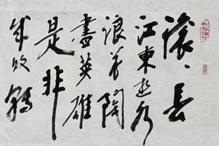 滚〻長
江東逝水
浪花淘
盡英雄
是非
成敗轉